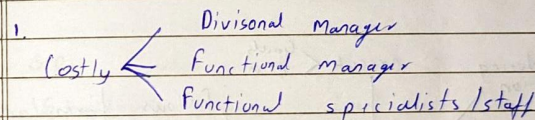 1. Divisonal Manager
Costly Functional manager
Functional spicialists/staff